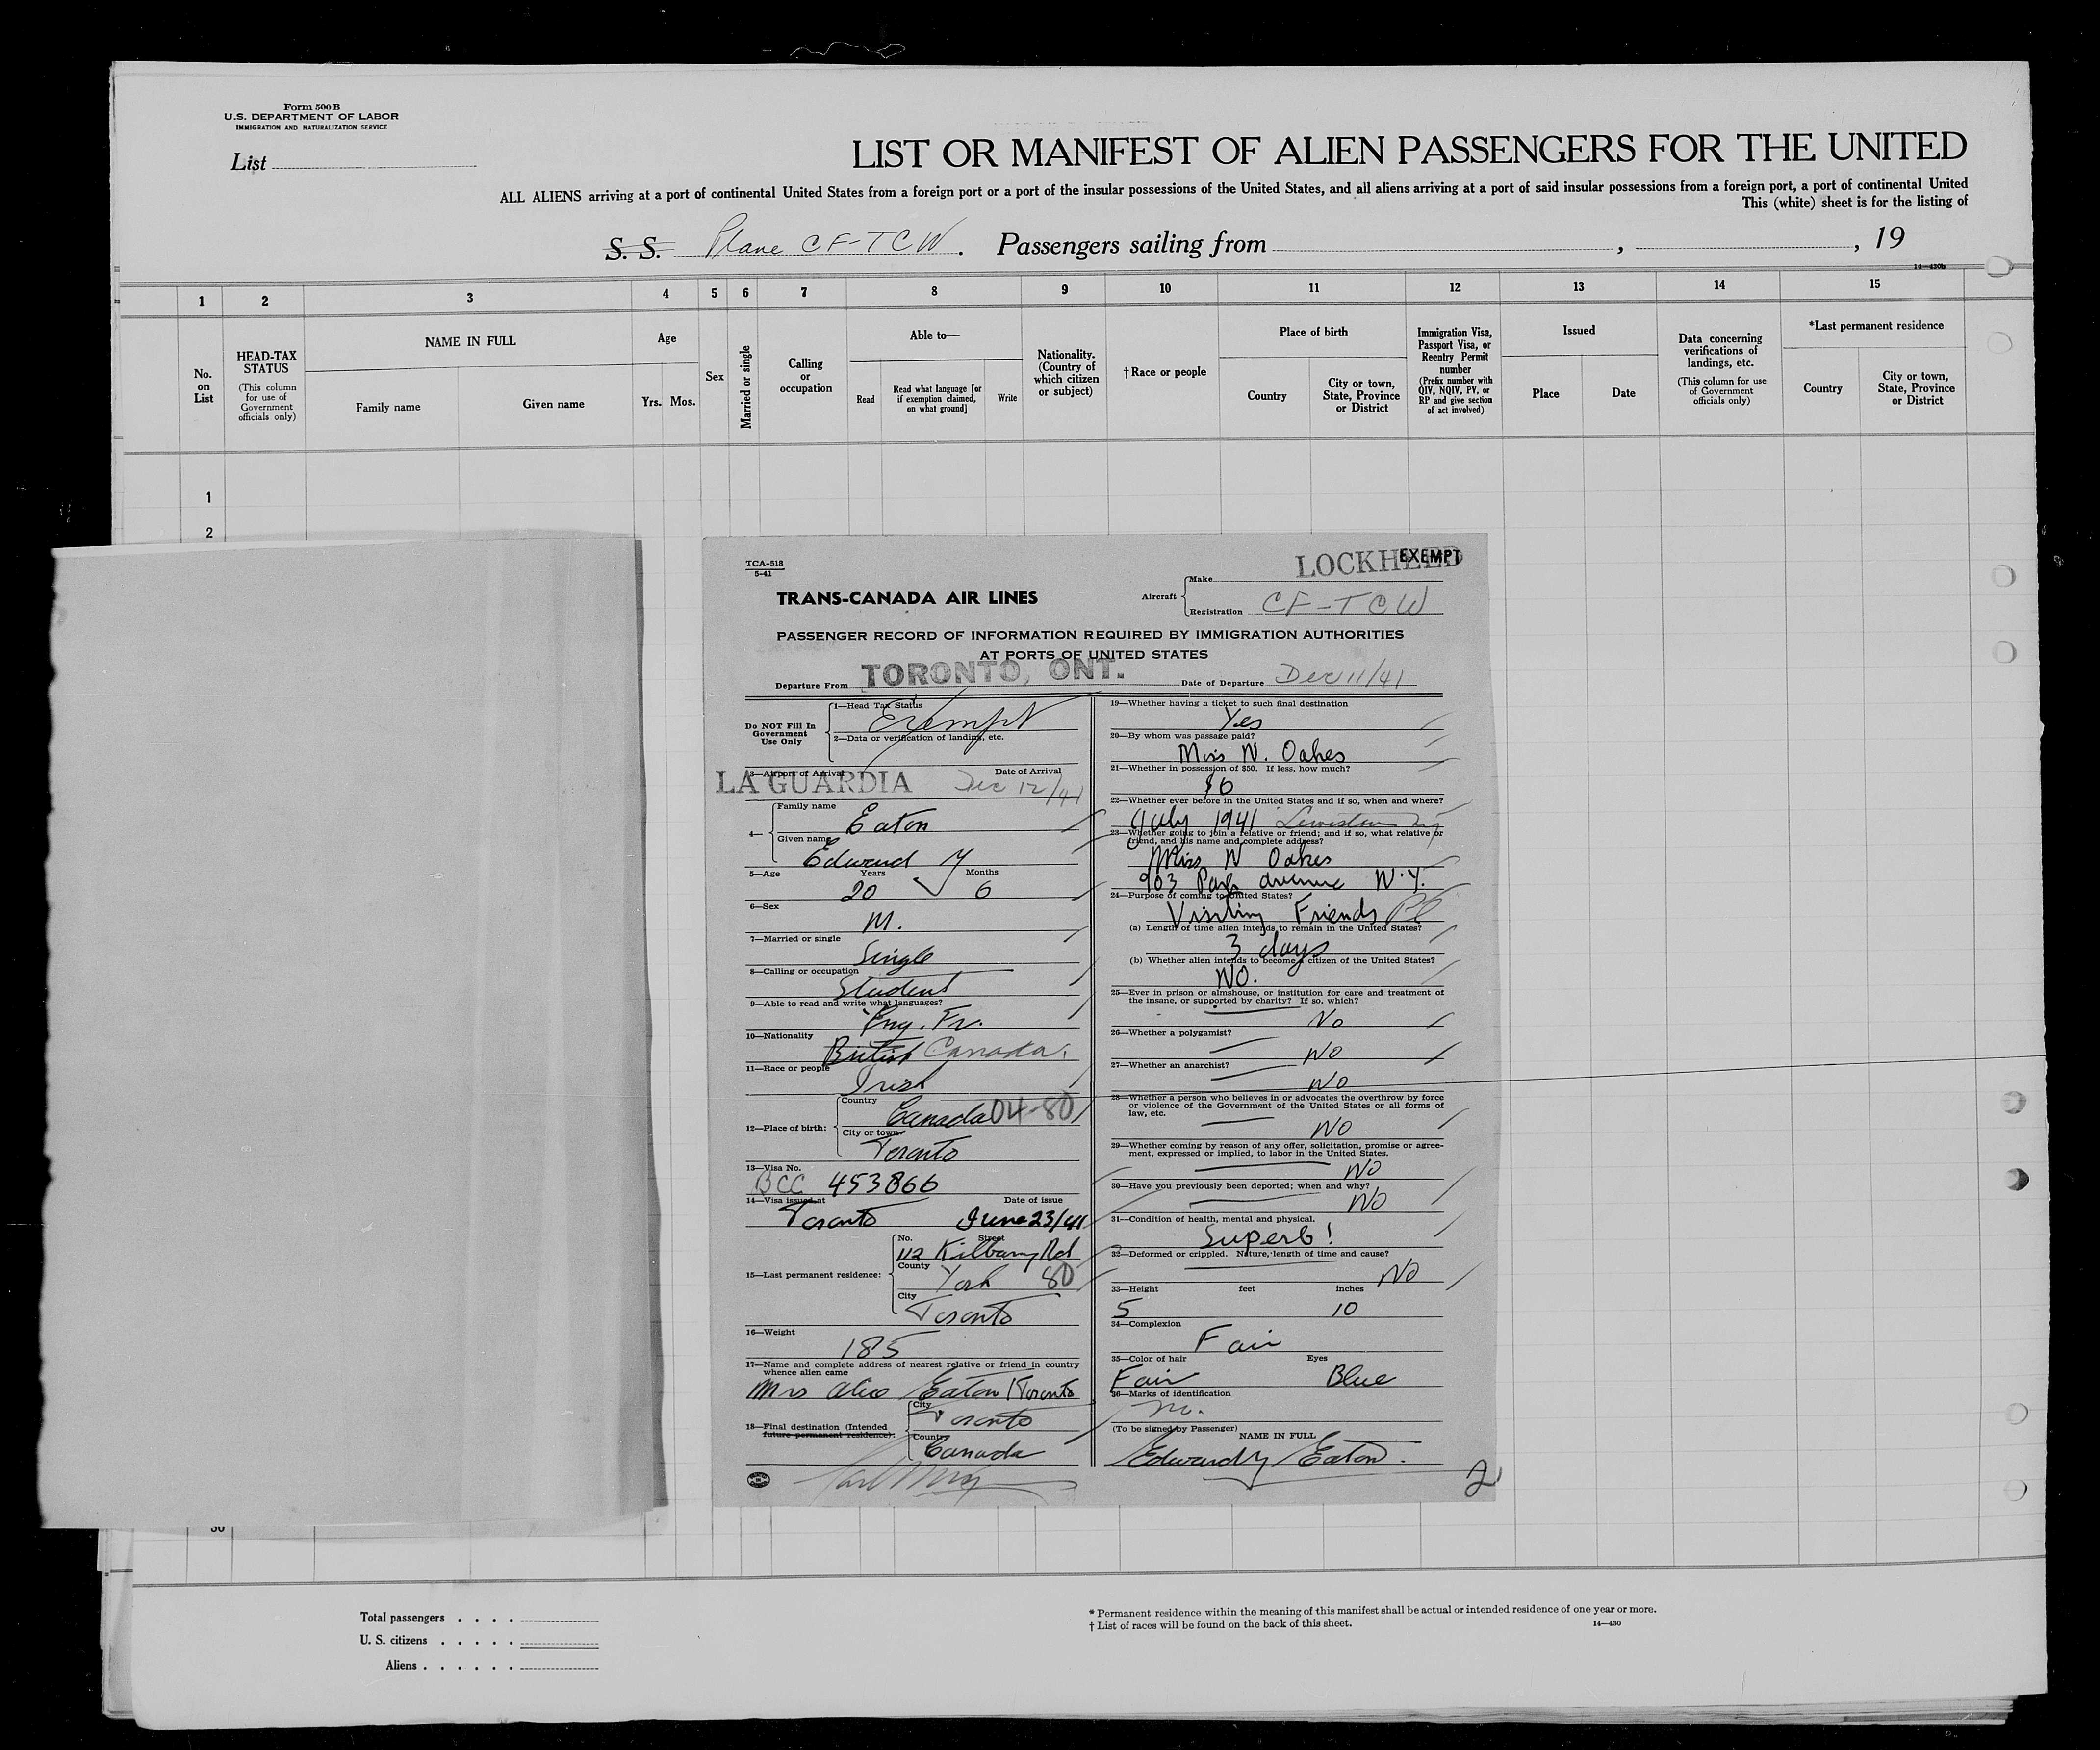 Form 500 B
U.S. DEPARTMENT OF LABOR
IMMIGRATION AND NATURALIZATION SERVICE
List
LIST OR MANIFEST OF ALIEN PASSENGERS FOR THE UNITED
ALL ALIENS arriving at a port of continental United States from a foreign port or a port of the insular possessions of the United States, and all aliens arriving at a port of said insular possessions from a foreign port, a port of continental United
This (white) sheet is for the listing of
S. S. Plane CF-TCW. Passengers sailing from , , 19
14—430b
1 2 3 4 5 6 7 8 9 10 11 12 13 14 15
No. on List
HEAD-TAX STATUS
(This column for use of Government officials only)
NAME IN FULL
Family name
Given name
Age
Yrs. Mos.
Sex
Married or single
Calling or occupation
Able to—
Read
Read what language [or if exemption claimed, on what ground]
Write
Nationality. (Country of which citizen or subject)
†Race or people
Place of birth
Country
City or town, State, Province or District
Immigration Visa, Passport Visa, or Reentry Permit number
(Prefix number with QIV, NQIV, PV, or RP and give section of act involved)
Issued
Place
Date
Data concerning verifications of landings, etc.
(This column for use of Government officials only)
*Last permanent residence
Country
City or town, State, Province or District
1
2
TCA-518
5-41
LOCKHEED
EXEMPT
TRANS-CANADA AIR LINES
Aircraft
Make
Registration CF-TCW
PASSENGER RECORD OF INFORMATION REQUIRED BY IMMIGRATION AUTHORITIES
AT PORTS OF UNITED STATES
Departure From TORONTO, ONT. Date of Departure Dec 11/41
Do NOT Fill In
Government
Use Only
1—Head Tax Status
Exempt
2—Data or verification of landing, etc.
3—Airport of Arrival Date of Arrival
LA GUARDIA Dec 12/41
4—
Family name
Eaton
Given name
Edward Y
5—Age Years Months
20 6
6—Sex
M.
7—Married or single
Single
8—Calling or occupation
Student
9—Able to read and write what languages?
Eng. Fr.
10—Nationality
British Canada.
11—Race or people
Irish
12—Place of birth:
Country
Canada 04-80
City or town
Toronto
13—Visa No.
BCC 453866
14—Visa issued at Date of issue
Toronto June 23/41
15—Last permanent residence:
No. Street
112 Kilbarry Rd
County
York 80
City
Toronto
16—Weight
185
17—Name and complete address of nearest relative or friend in country
whence alien came
Mrs Eaton Toronto
18—Final destination (Intended
future permanent residence).
City
Toronto
Country
Canada
19—Whether having a ticket to such final destination
Yes
20—By whom was passage paid?
Miss N. Oakes
21—Whether in possession of $50. If less, how much?
$6
22—Whether ever before in the United States and if so, when and where?
July 1941 Lewiston NY
23—Whether going to join a relative or friend; and if so, what relative or
friend, and his name and complete address?
Miss N Oakes
903 Park Avenue N.Y.
24—Purpose of coming to United States?
Visiting Friends
(a) Length of time alien intends to remain in the United States?
3 days
(b) Whether alien intends to become a citizen of the United States?
NO.
25—Ever in prison or almshouse, or institution for care and treatment of
the insane, or supported by charity? If so, which?
No
26—Whether a polygamist?
NO
27—Whether an anarchist?
NO
28—Whether a person who believes in or advocates the overthrow by force
or violence of the Government of the United States or all forms of
law, etc.
NO
29—Whether coming by reason of any offer, solicitation, promise or agree-
ment, expressed or implied, to labor in the United States.
NO
30—Have you previously been deported; when and why?
NO
31—Condition of health, mental and physical.
Superb!
32—Deformed or crippled. Nature, length of time and cause?
NO
33—Height feet inches
5 10
34—Complexion
Fair
35—Color of hair Eyes
Fair Blue
36—Marks of identification
no.
(To be signed by Passenger)
NAME IN FULL
Edward Y Eaton.
2
30
Total passengers . . . .
U. S. citizens . . . . .
Aliens . . . . . .
* Permanent residence within the meaning of this manifest shall be actual or intended residence of one year or more.
† List of races will be found on the back of this sheet.
14—430